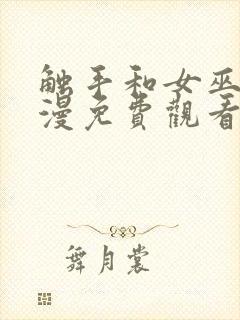 触手和女巫
漫免費觀看
舞月裳